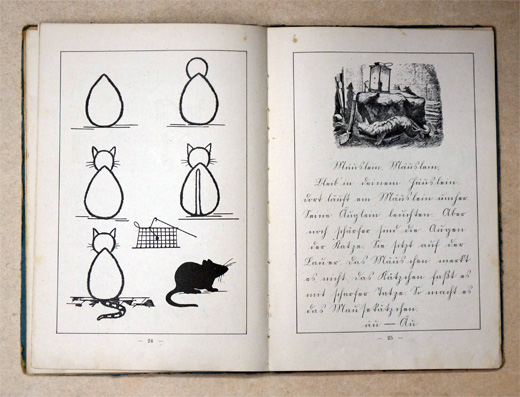 - 24 -
Mäuslein, Mäuslein,
bleib in deinem Häuslein.
Dort läuft ein Mäuslein umher
Seine Äuglein leuchten. Aber
noch schärfer sind die Augen
der Katze. Sie sitzt auf der
Lauer. Das Mäuschen merkt
es nicht. Das Kätzchen faßt es
mit scharfer Tatze. So macht es
das Mausekätzchen.
äu — Äu
- 25 -